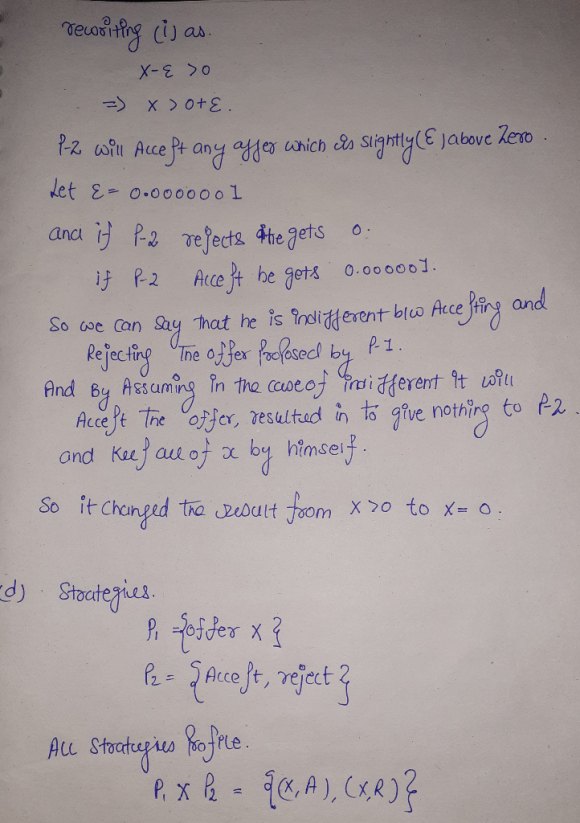 rewriting (i) as.
X-ε >0
=> x > 0+ε.
P-2 will Accept any offer which is slightly(ε) above Zero.
Let ε = 0.0000001
and if P-2 rejects he gets 0.
if P-2 Accept he gets 0.000001.
So we can say That he is indifferent b/w Accepting and
Rejecting The offer Proposed by P-1.
And By Assuming in the case of indifferent it will
Accept The offer, resulted in to give nothing to P-2.
and Keep all of x by himself.
So it changed the result from x >0 to x= 0.
(d) Strategies.
P₁ = {offer x}
P₂ = {Accept, reject}
All Strategies Profile.
P₁ X P₂ = {(X, A), (X,R)}